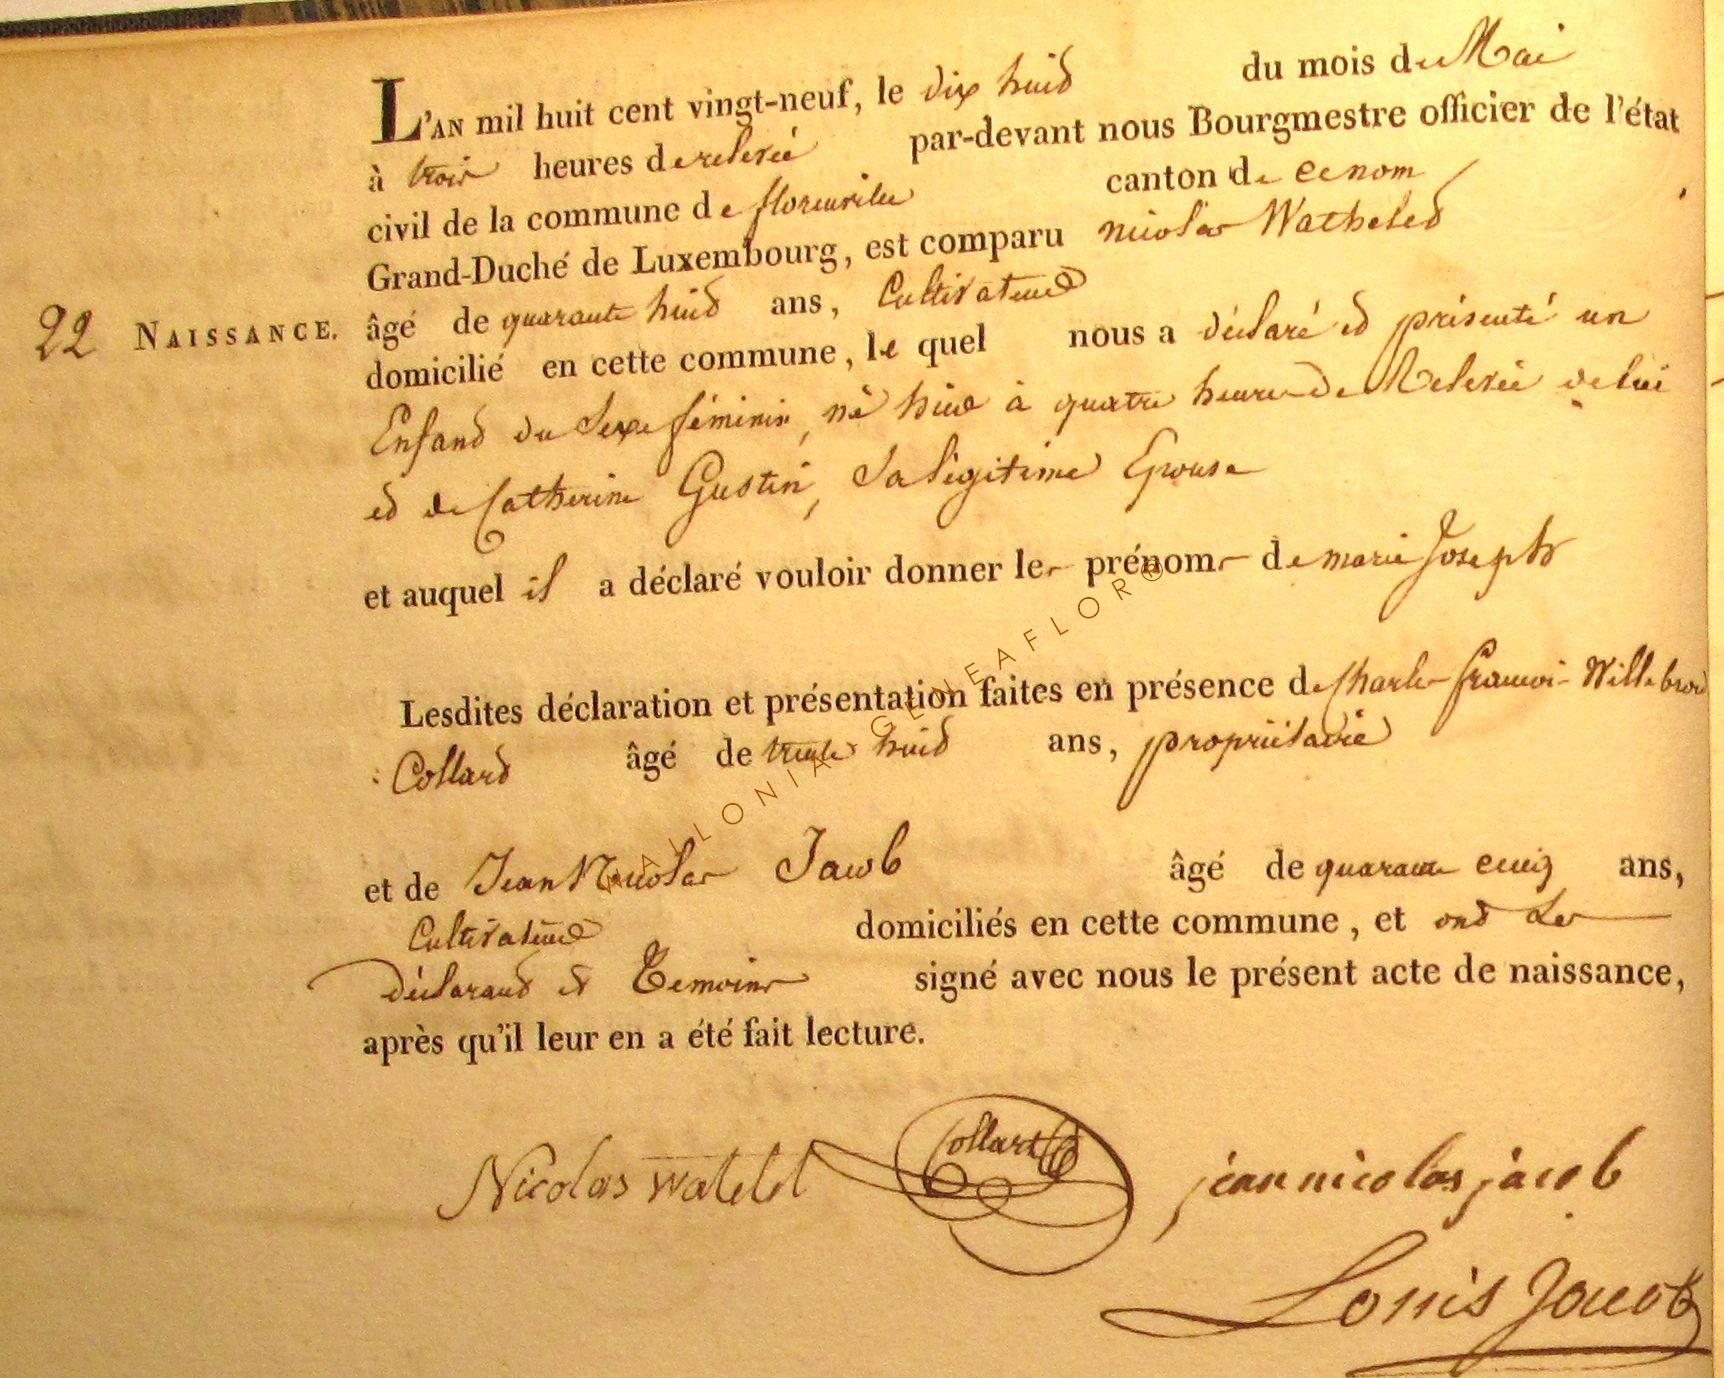 L'AN mil huit cent vingt-neuf, le dix huid du mois de Mai
à trois heures de relevée par-devant nous Bourgmestre officier de l'état
civil de la commune de florenville canton de ce nom
Grand-Duché de Luxembourg, est comparu nicolas Watheled
22 NAISSANCE. âgé de quarante huid ans, Cultivateur
domicilié en cette commune, le quel nous a déclaré ed présenté un
Enfand du Sexe féminin, né hier à quatre heures de Relevée de lui
ed de Catherine Gustin, Sa légitime Epouse
et auquel il a déclaré vouloir donner les prénoms de marie Joseph
Lesdites déclaration et présentation faites en présence de Charles françois Willebrord
Collard âgé de trente huid ans, propriétaire
et de Jean Nicolas Jacob âgé de quarante cinq ans,
Cultivateur domiciliés en cette commune, et ond les
déclarand et Temoins signé avec nous le présent acte de naissance,
après qu'il leur en a été fait lecture.
WALLONIA GENEAFLOR®
Nicolas watelet Collart jean nicolas jacob
Louis Jacob